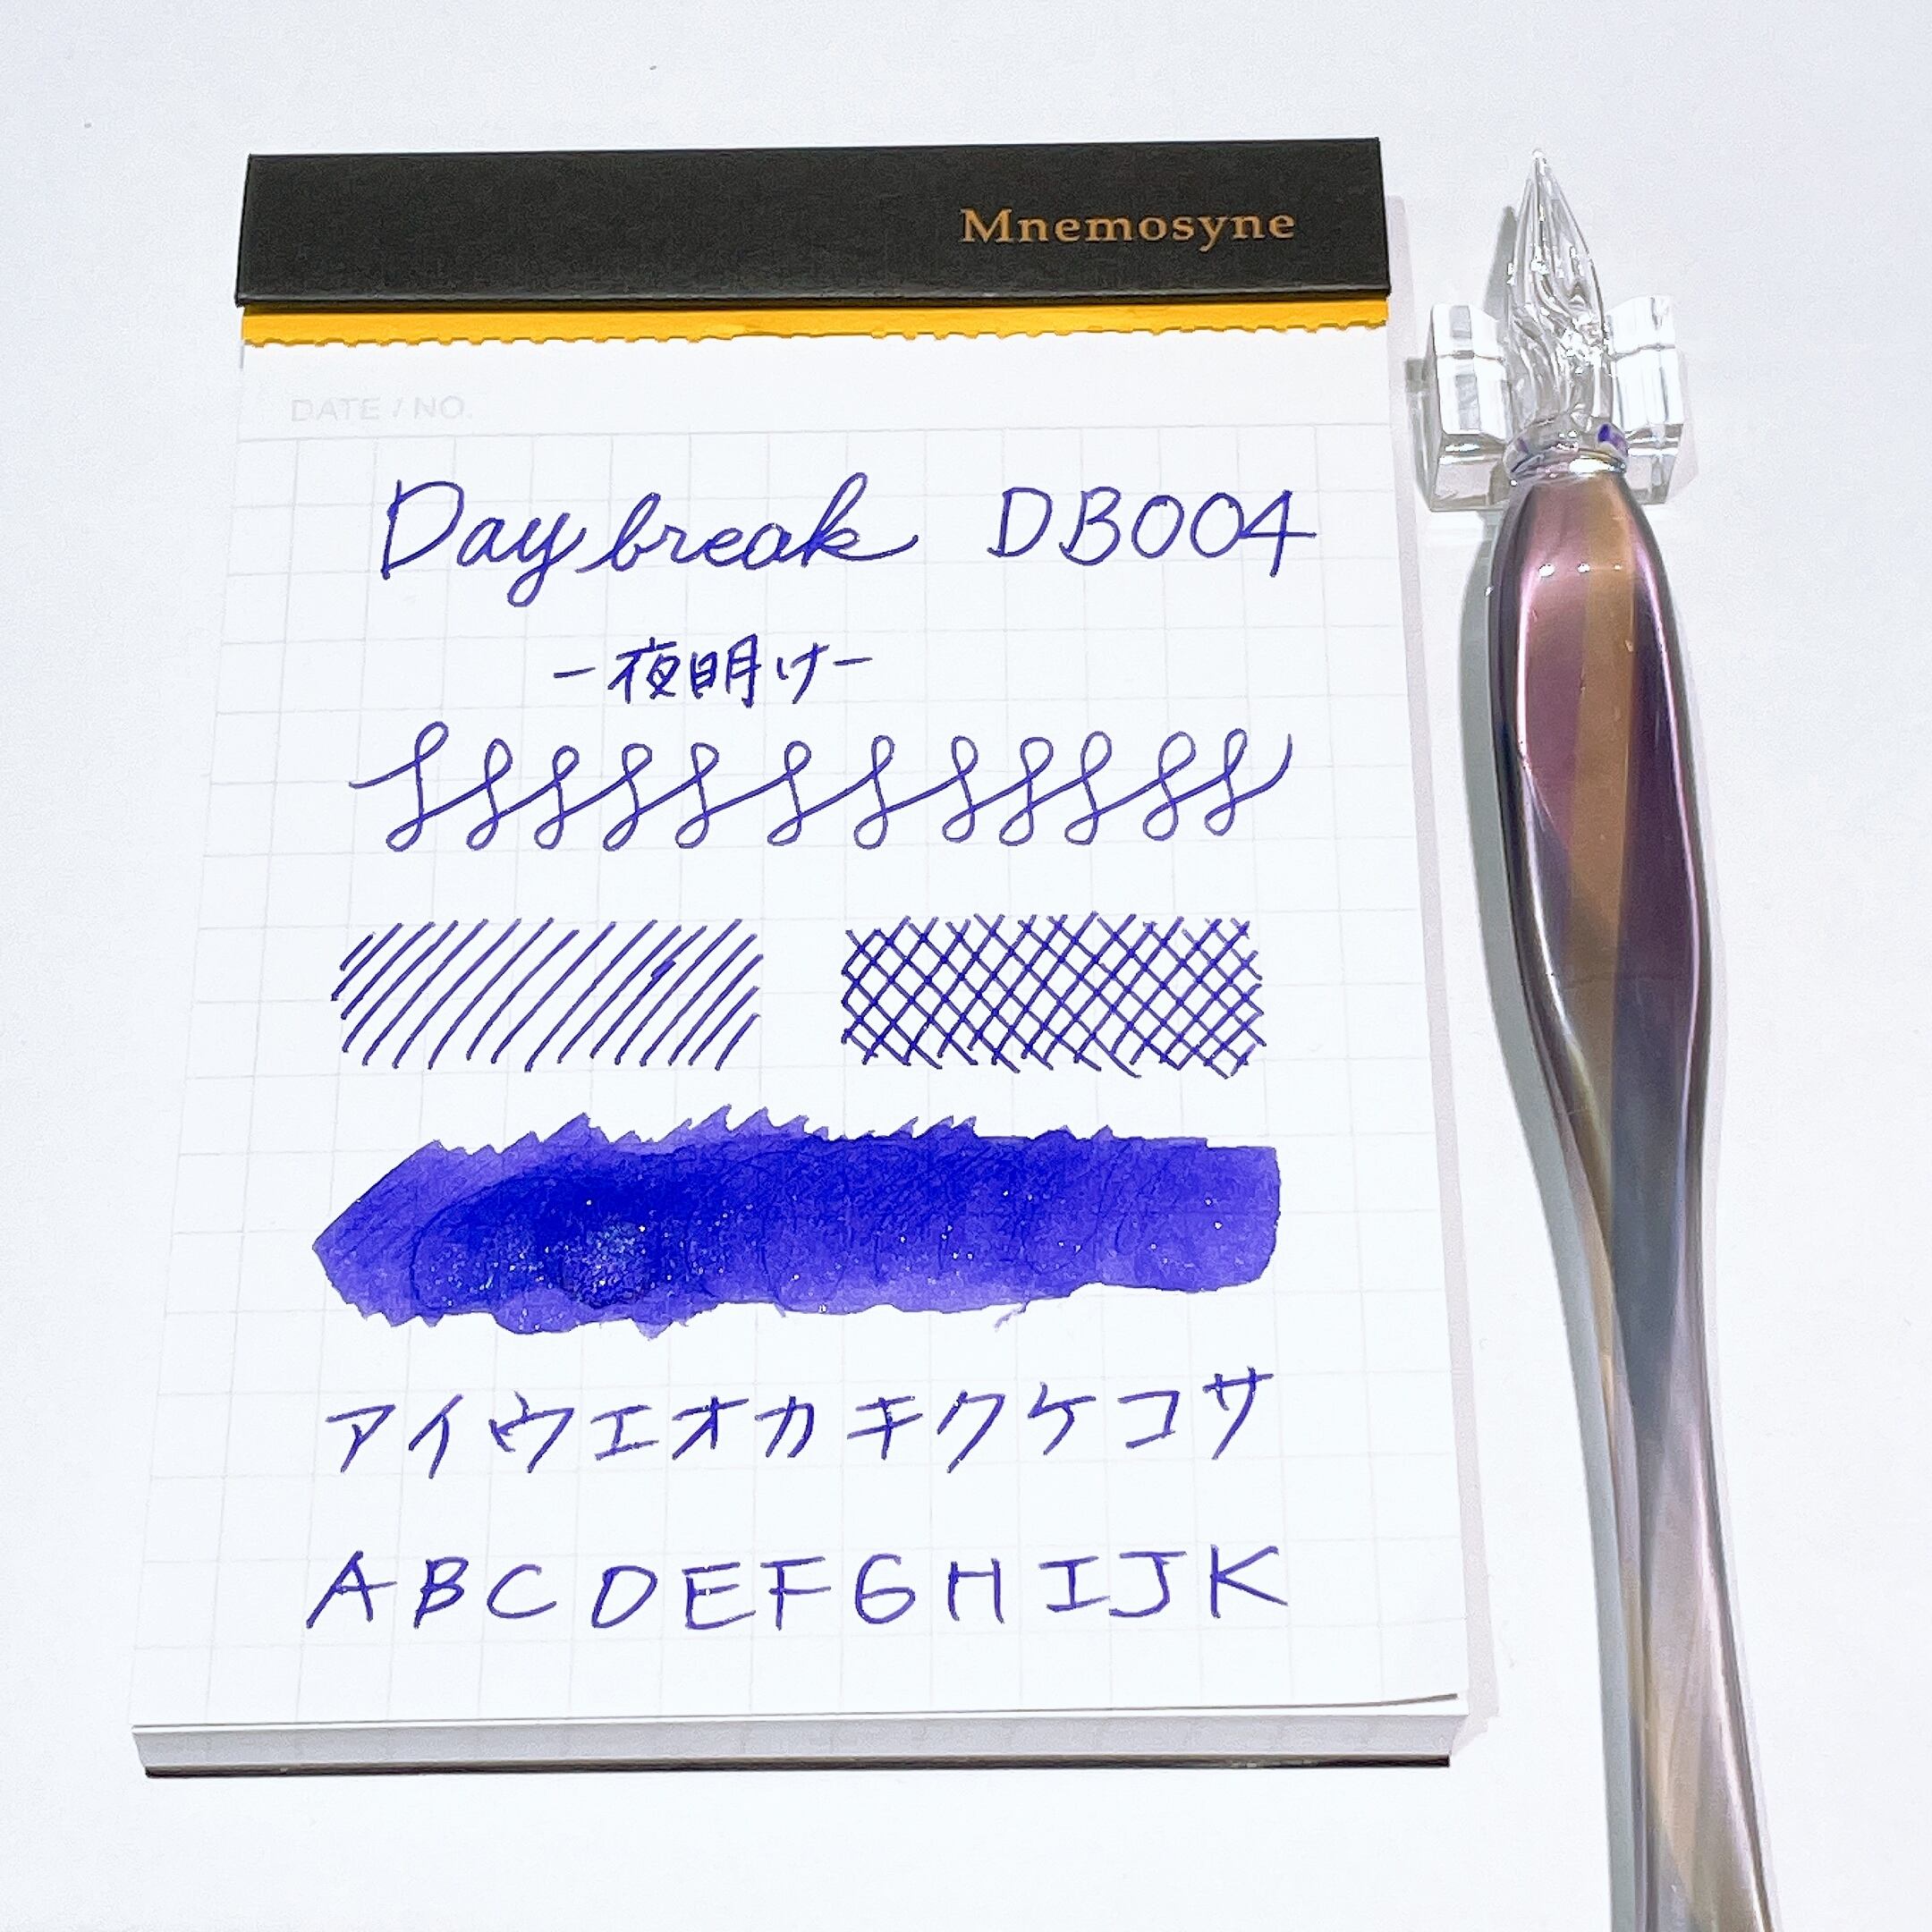 Mnemosyne
DATE / NO.
Daybreak DB004
-夜明け-
アイウエオカキクケコサ
ABCDEFGHIJK